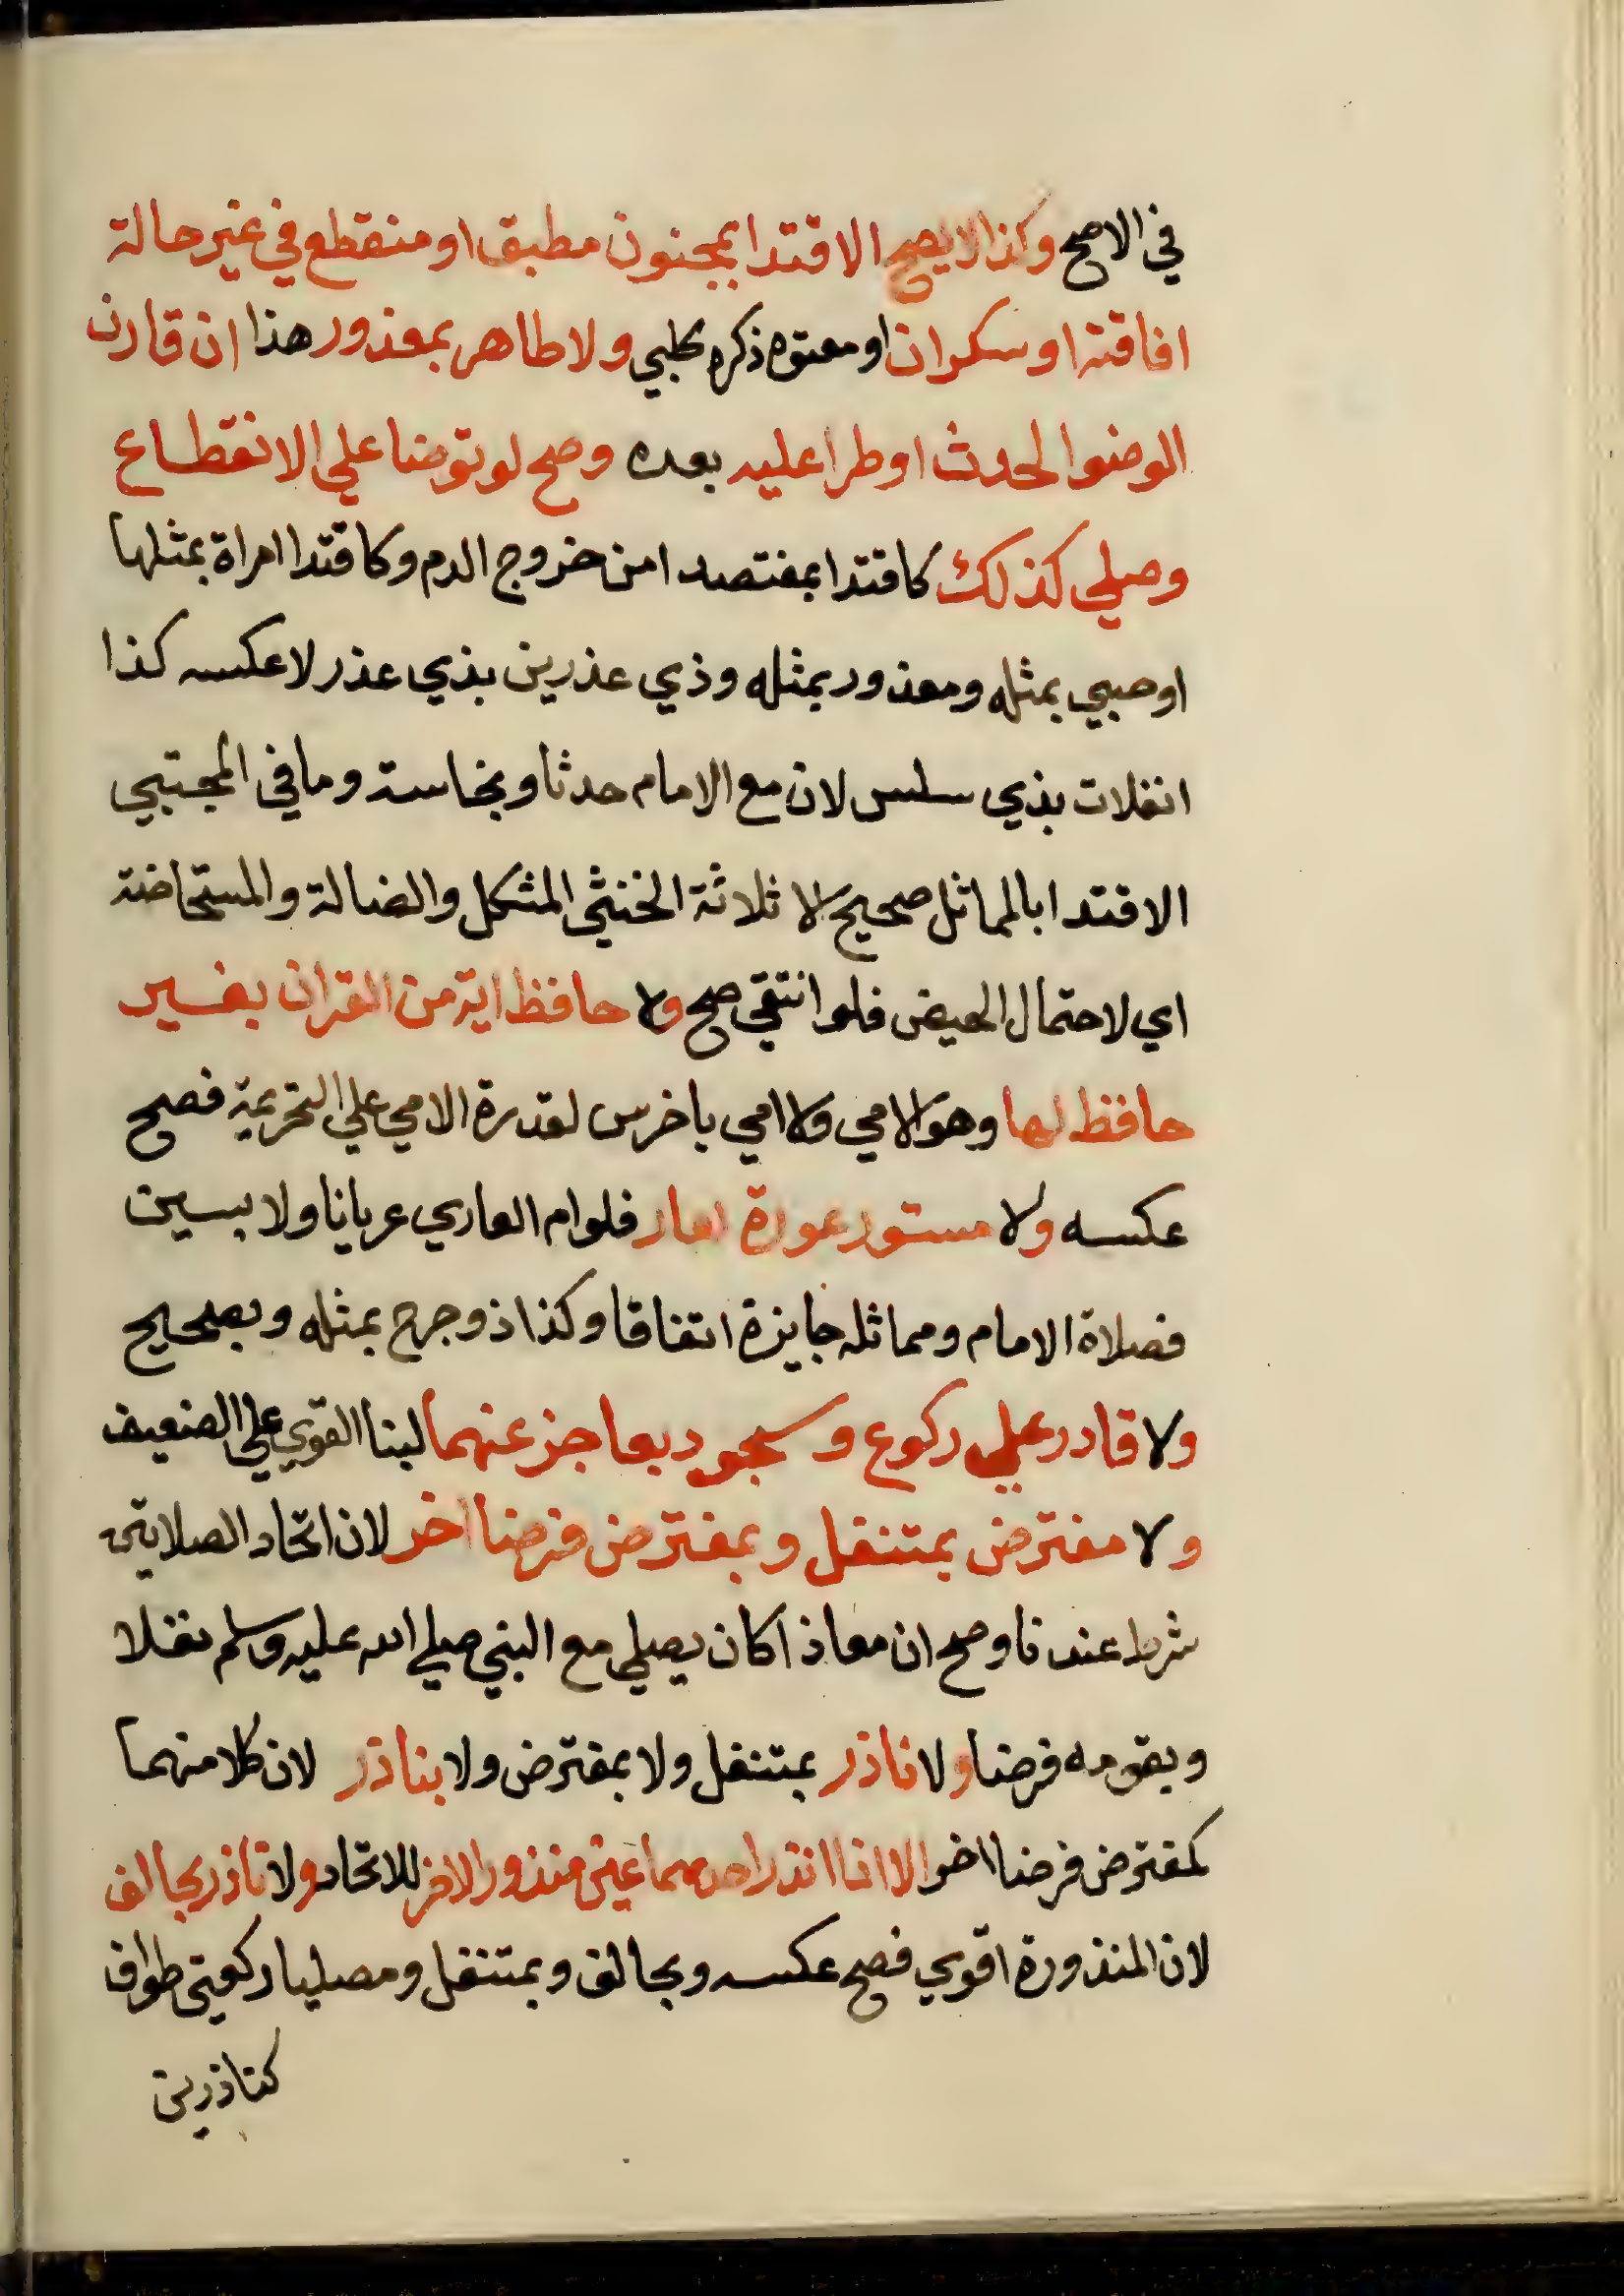 في الاصح وكذا لا يصح الاقتدا بمجنون مطبق او منقطع في غير حالة
افاقته او سكران او معتوه ذكره حلبي ولا طاهر بمعذور هذا ان قارن
الوضوا لحدث او طرا عليه بعده وصح لو توضا علي الانقطاع
وصلي كذلك كاقتدا بمفتصد امن خروج الدم وكاقتدا امراة بمثلها
او صبي بمثله ومعذور بمثله وذي عذرين بذي عذر لا عكسه كذا
انفلات بذي سلس لان مع الامام حدثا ونجاسة وما في المجتبي
الاقتدا بالمماثل صحيح الا ثلاثة الخنثي المشكل والضالة والمستحاضة
اي لاحتمال الحيض فلو انتقي صح ولا حافظ اية من القران بغير
حافظ لها وهو الامي ولا امي باخرس لقدرة الامي علي التحريمة فصح
عكسه ولا مستور عورة بعار فلو ام العاري عريانا ولابسين
فصلاة الامام ومماثله جايزة اتفاقا وكذا ذو جرح بمثله وبصحيح
ولا قادر علي ركوع وسجود بعاجز عنهما لبنا القوي علي الضعيف
ولا مفترض بمتنفل وبمفترض فرضا اخر لان اتحاد الصلاتين
شرط عندنا وصح ان معاذا كان يصلي مع النبي صلي الله عليه وسلم نفلا
وبقومه فرضا ولا ناذر بمتنفل ولا بمفترض ولا بناذر لان كلا منهما
كمفترض فرضا اخر الا اذا نذر احدهما عين منذور الاخر للاتحاد ولا ناذر بحالف
لان المنذورة اقوي فصح عكسه وبحالف وبمتنفل ومصليا ركعتي طواف
كناذرين